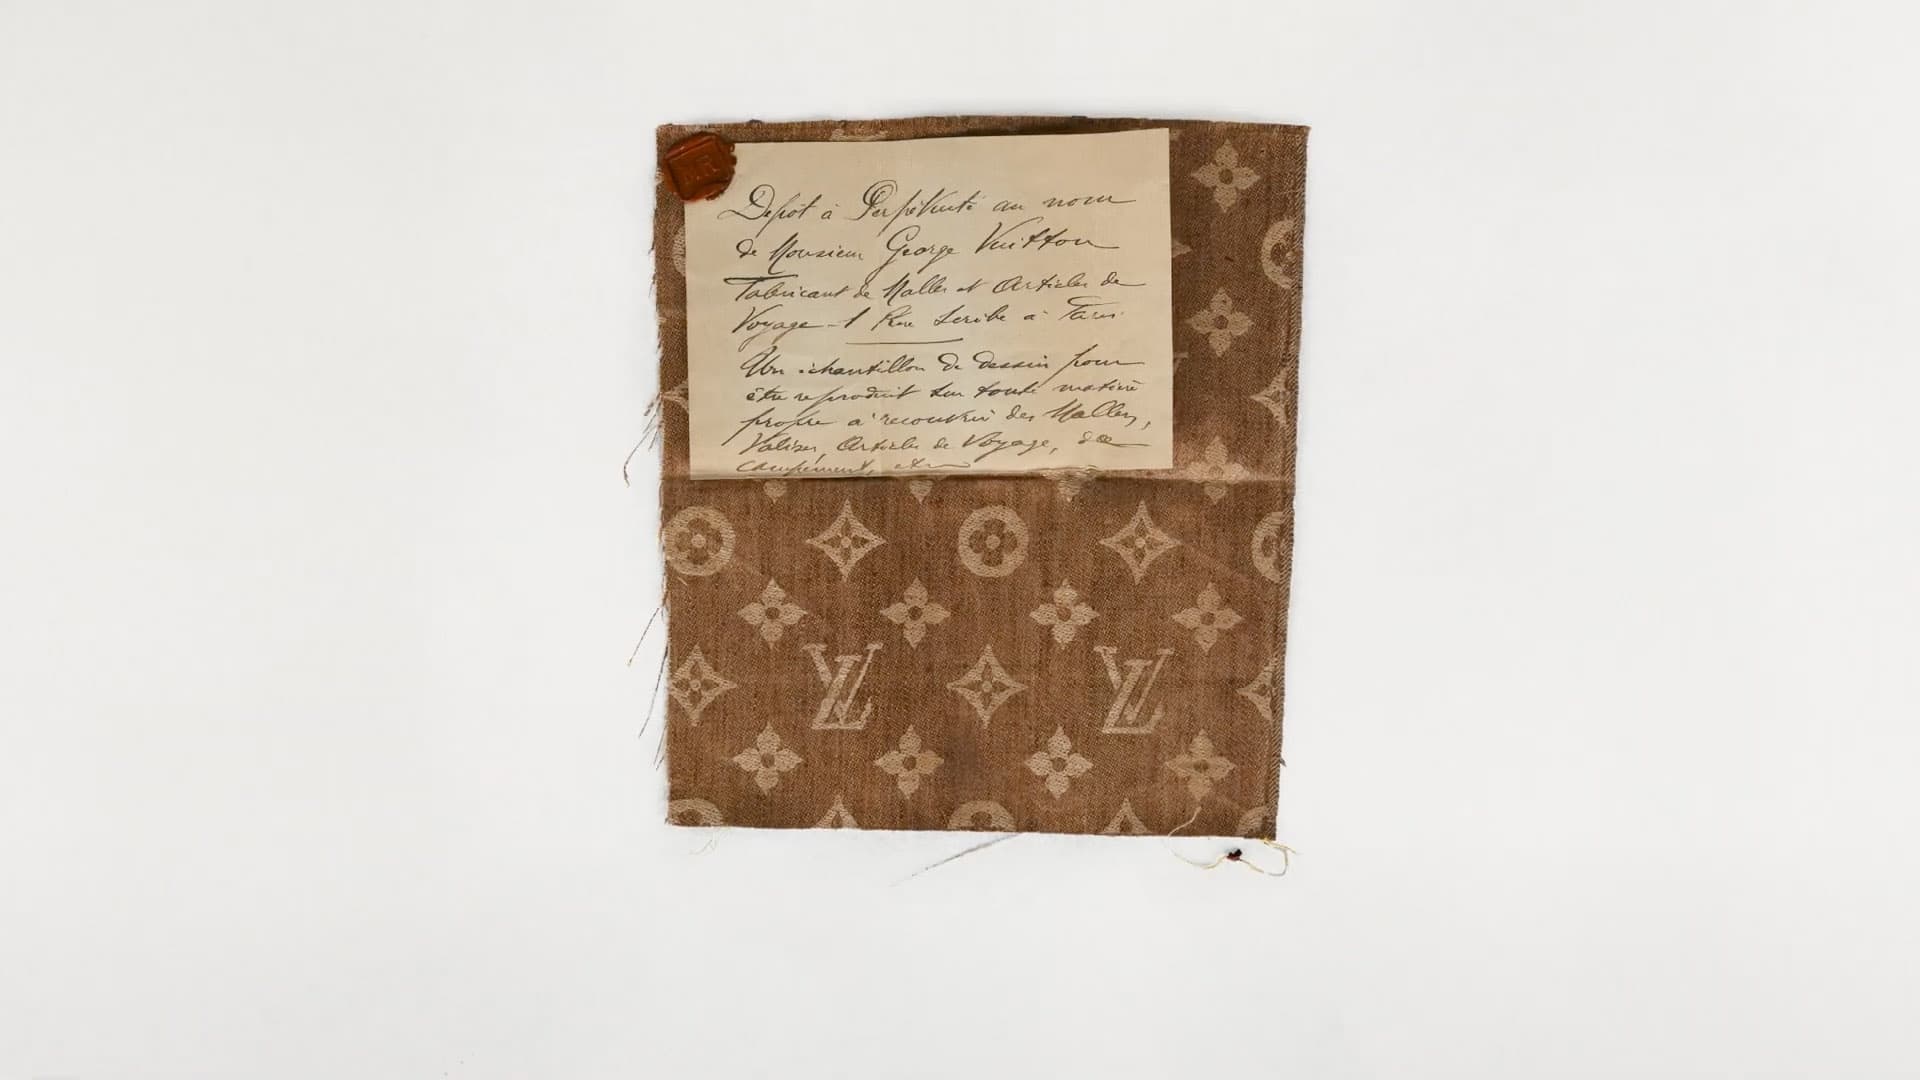 Dépôt à Perpétuité au nom
de Monsieur George Vuitton
Fabricant de Malles et Articles de
Voyage - 1 Rue Scribe à Paris
Un échantillon de dessin pour
être reproduit sur toute matière
propre à recouvrir des Malles,
Valises, Articles de Voyage, de
campement, etc
LV LV